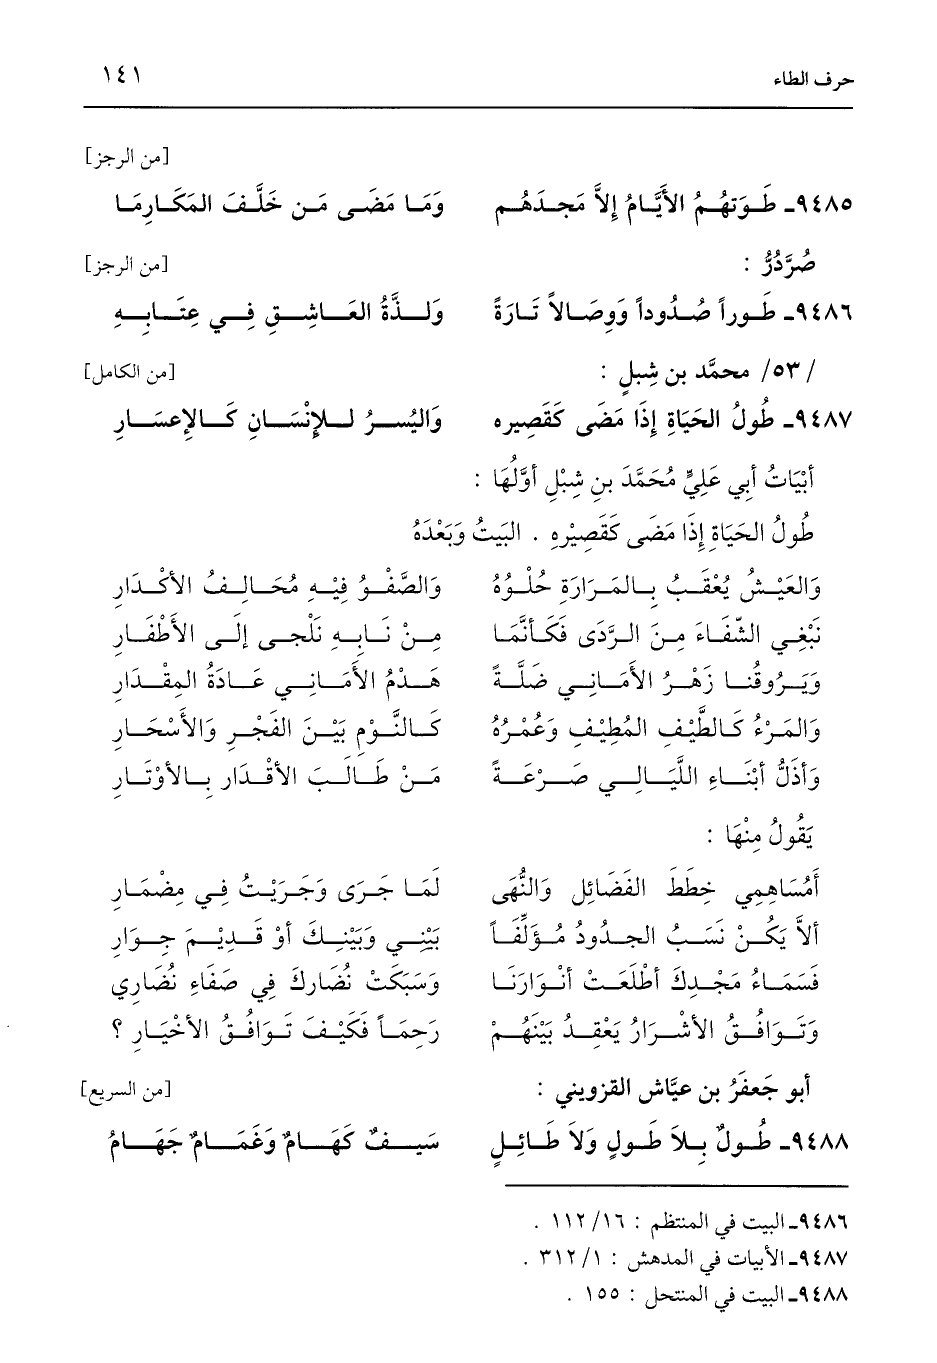 حرف الطاء ١٤١
[من الرجز]
٩٤٨٥ـ طَوَتهُمُ الأيَّامُ إلاَّ مَجدَهُم وَمَا مَضَى مَن خَلَّفَ المَكَارِمَا
صُرَّدُرُّ : [من الرجز]
٩٤٨٦ـ طَوراً صُدُوداً وَوِصَالاً تَارَةً وَلَذَّةُ العَاشِقِ فِي عِتَابِهِ
/ ٥٣/ محمَّد بن شِبلٍ : [من الكامل]
٩٤٨٧ـ طُولُ الحَيَاةِ إذَا مَضَى كَقَصِيرِه وَاليُسرُ لِلإنْسَانِ كَالإعسَارِ
أبْيَاتُ أبي عَلِيٍّ مُحَمَّدَ بنِ شِبْلٍ أوَّلُهَا :
طُولُ الحَيَاةِ إذَا مَضَى كَقَصِيْرِهِ . البَيتُ وَبَعْدَهُ
وَالعَيْشُ يُعْقَبُ بِالمَرَارَةِ حُلْوُهُ وَالصَّفْوُ فِيْهِ مُخَالِفُ الأكْدَارِ
نَبْغِي الشّفَاءَ مِنَ الرَّدَى فَكَأنَّمَا مِنْ نَابِهِ نَلْجِى إلَى الأظْفَارِ
وَيَرُوقُنَا زَهْرُ الأمَانِي ضَلَّةً هَدْمُ الأمَانِي عَادَةُ المِقْدَارِ
وَالمَرْءُ كَالطَّيْفِ المُطِيْفِ وَعُمْرُهُ كَالنَّوْمِ بَيْنَ الفَجْرِ وَالأَسْحَارِ
وَأذَلُّ أبْنَاءِ اللَّيَالِي صَرْعَةً مَنْ طَالَبَ الأقْدَارِ بِالأوْتَارِ
يَقُولُ مِنْهَا :
أمُسَاهِمِي خِطَطَ الفَضَائِلِ وَالنُّهَى لَمَا جَرَى وَجَرَيْتُ فِي مِضْمَارِ
ألاَّ يَكُنْ نَسَبُ الجدُودُ مُؤَلِّفاً بَيْنِي وَبَيْنِكَ أوْ قَدِيْمَ جِوَارِ
فَسَمَاءُ مَجْدِكَ أطْلَعَتْ أنْوَارَنَا وَسَبَكَتْ نُضَارِكَ فِي صَفَاءِ نُضَارِي
وَتَوَافُقُ الأشْرَارُ يَعْقِدُ بَيْنَهُمْ رَحِمَاً فَكَيْفَ تَوَافُقُ الأخْيَارِ ؟
أبو جَعفَرُ بن عيَّاش القزويني : [من السريع]
٩٤٨٨ـ طُولٌ بِلاَ طَولٍ وَلاَ طَائِلٍ سَيفٌ كَهَامٌ وَغَمَامٌ جَهَامُ
٩٤٨٦ـ البيت في المنتظم : ١٦/ ١١٢ .
٩٤٨٧ـ الأبيات في المدهش : ١/ ٣١٢ .
٩٤٨٨ـ البيت في المنتحل : ١٥٥ .